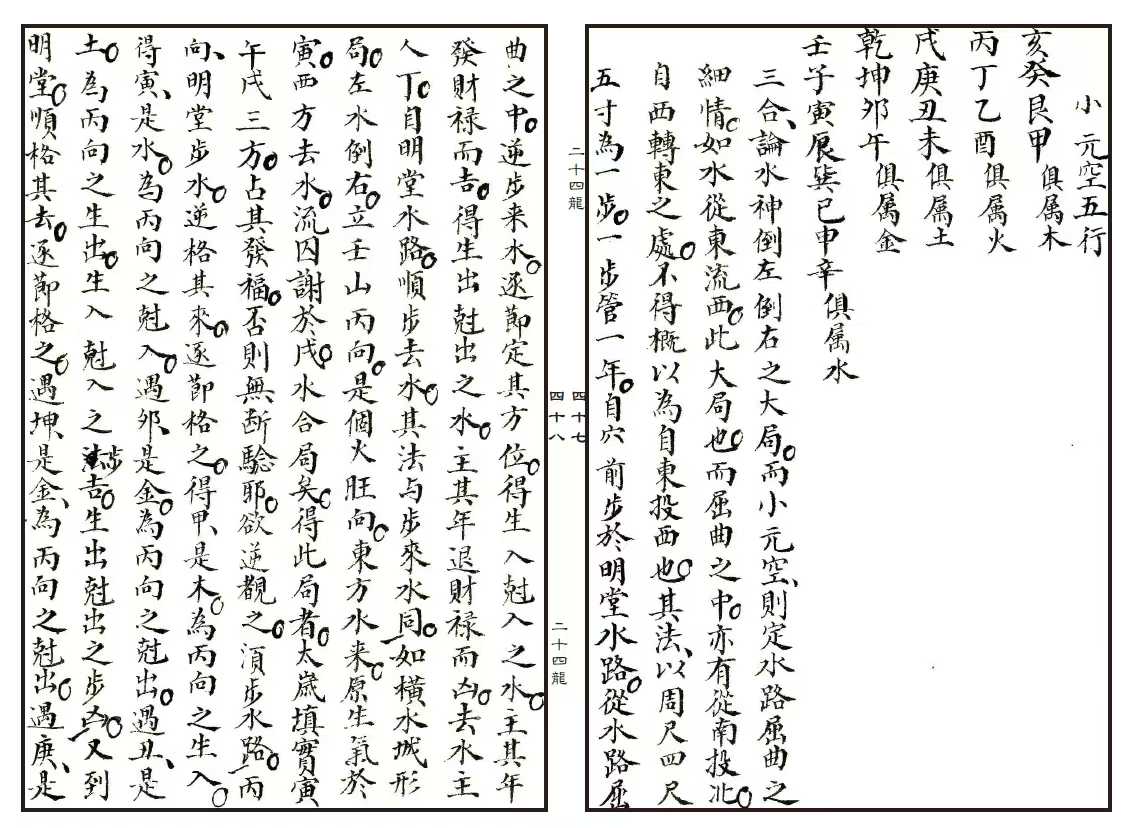 小元空五行
亥癸艮甲俱属木
丙丁乙酉俱属火
戌庚丑未俱属土
乾坤卯午俱属金
壬子寅辰巽巳申辛俱属水
三合論水神倒左倒右之大局而小元空則定水路屈曲之
細情如水從東流西此大局也而屈曲之中亦有從南投北
自西轉東之處不得概以為自東投西也其法以周尺四尺
五寸為一步一步管一年自穴前步於明堂水路從水路屈
四十七
二十四龍
四十八
二十四龍
曲之中逆步来水逐節定其方位得生入尅入之水主其年
發財禄而吉得生出尅出之水主其年退財禄而凶去水主
人丁自明堂水路順步去水其法与步來水同如橫水城形
局左水倒右立壬山丙向是個火旺向東方水来原生氣於
寅西方去水流囚謝於戌水合局矣得此局者太歲填實寅
午戌三方占其發福否則無斷驗耶欲逆覩之須步水路丙
向明堂步水逆格其來逐節格之得甲是木為丙向之生入
得寅是水為丙向之尅入遇卯是金為丙向之尅出遇丑是
土為丙向之生出生入尅入之步吉生出尅出之步凶又到
明堂順格其去逐節格之遇坤是金為丙向之尅出遇庚是